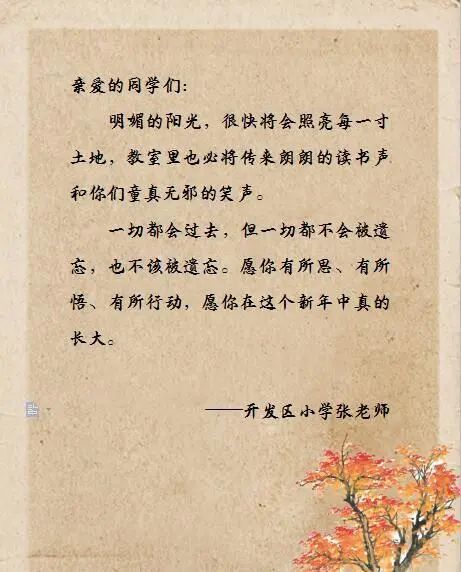 亲爱的同学们：
明媚的阳光，很快将会照亮每一寸
土地，教室里也必将传来朗朗的读书声
和你们童真无邪的笑声。
一切都会过去，但一切都不会被遗
忘，也不该被遗忘。愿你有所思、有所
悟、有所行动，愿你在这个新年中真的
长大。
——开发区小学张老师